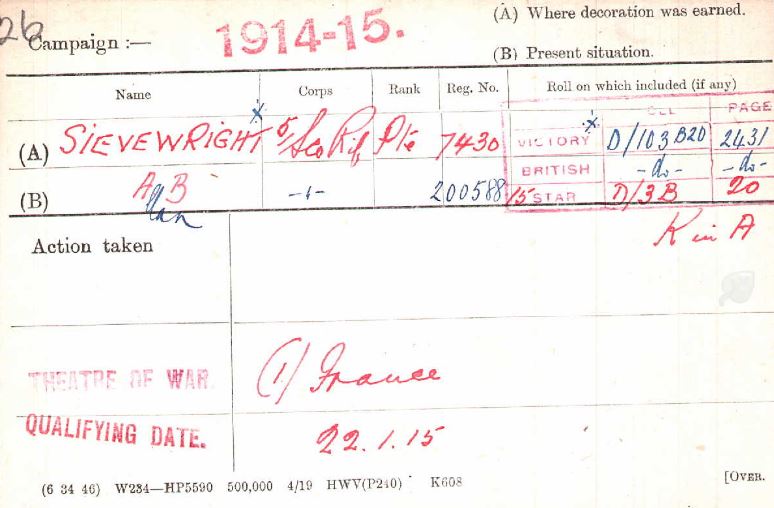 26
(A) Where decoration was earned.
Campaign :— 1914-15.
(B) Present situation.
Name Corps Rank Reg. No. Roll on which included (if any)
ROLL PAGE
(A) SIEVEWRIGHT x 5/Sco Rif Pte 7430 VICTORY x D/103 B20 2431
BRITISH -do- -do-
(B) A B -"- 200588 15 STAR D/3B 20
llan
K in A
Action taken
THEATRE OF WAR. (1) France
QUALIFYING DATE. 22.1.15
(6 34 46) W234—HP5590 500,000 4/19 HWV(P240) K608 [OVER.